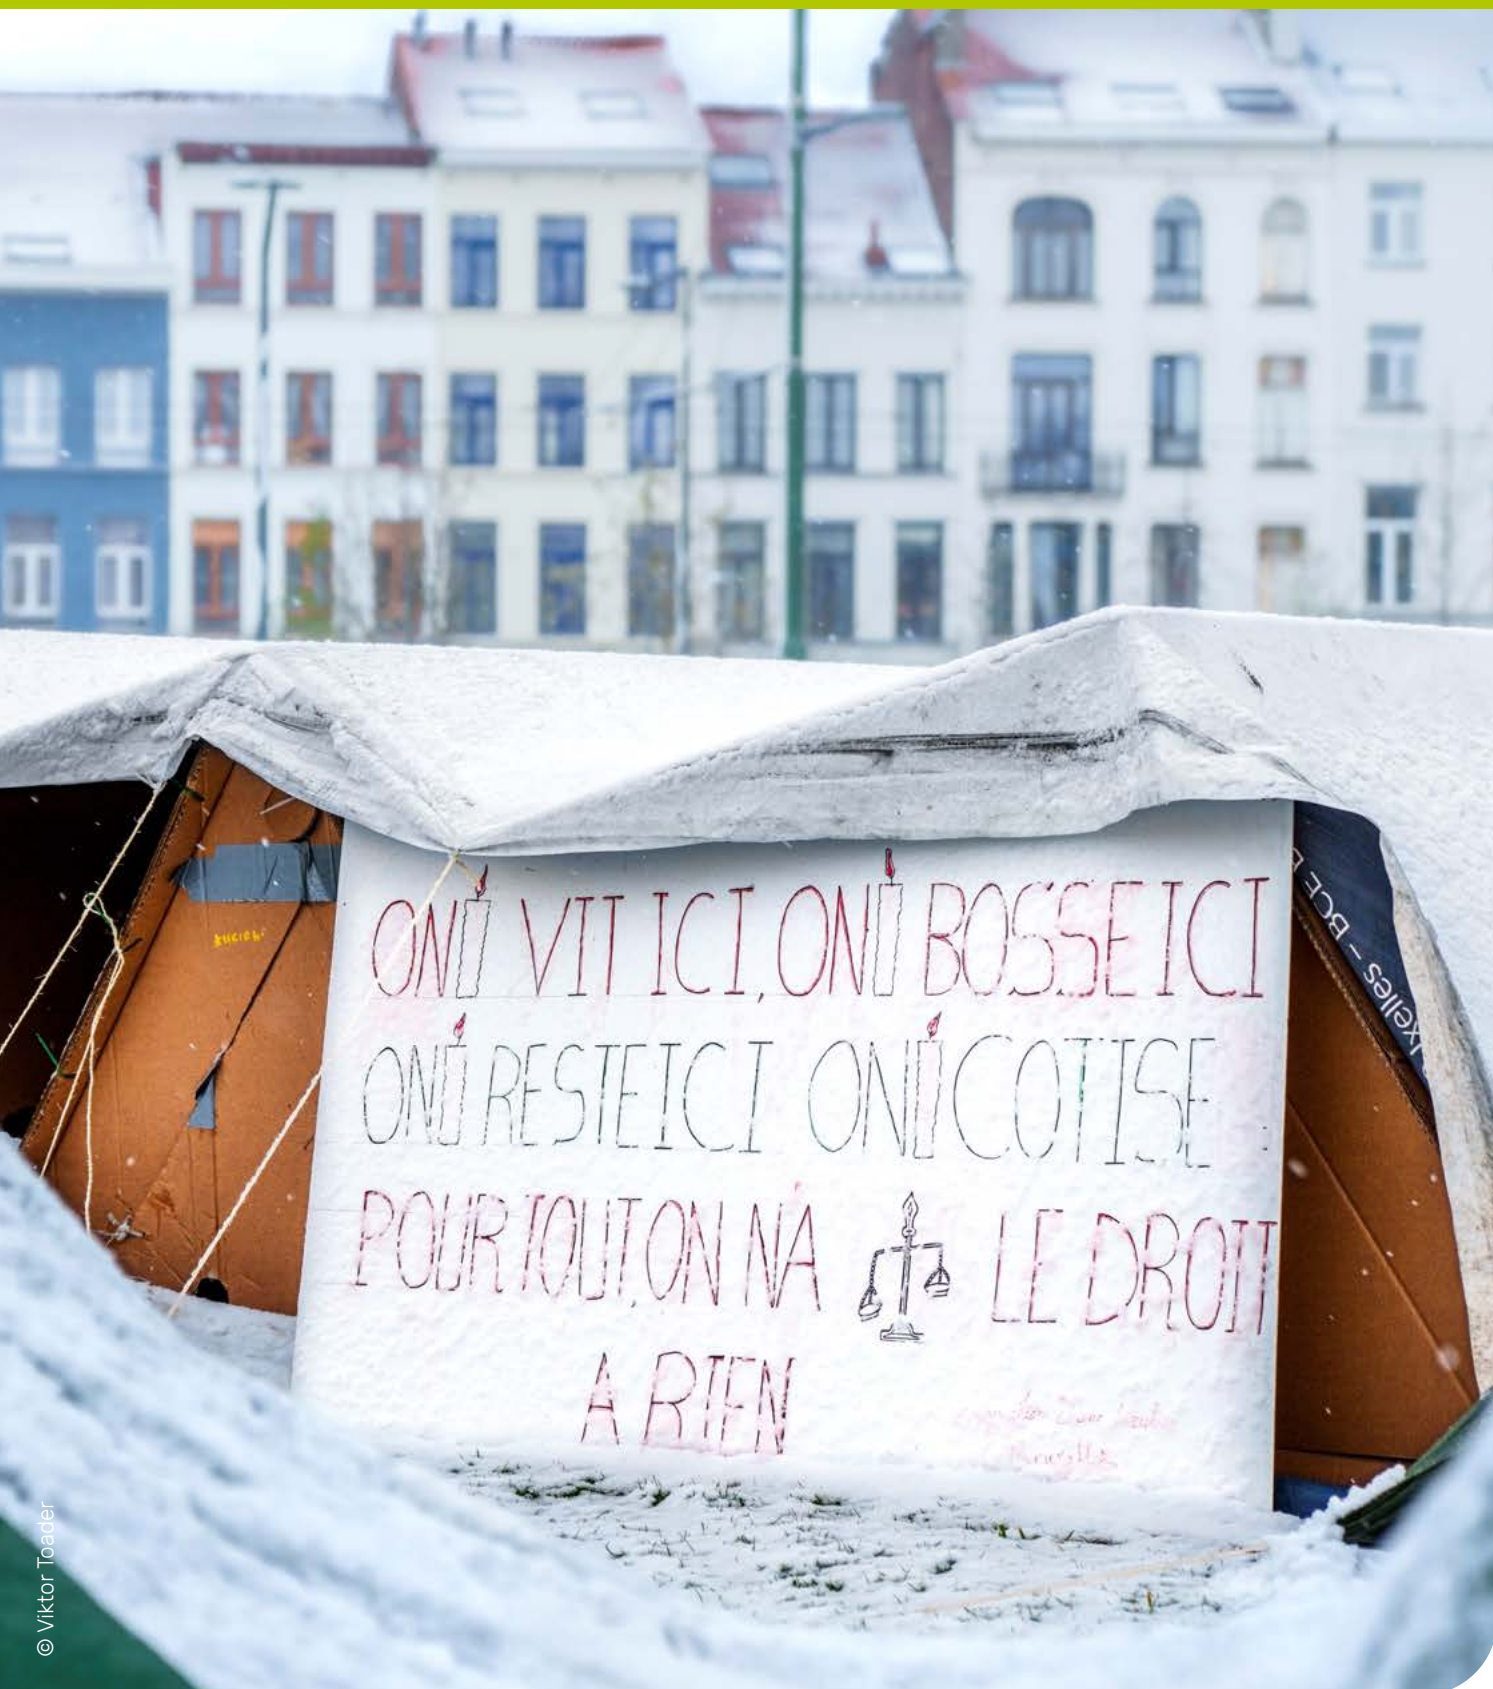 ON VIT ICI, ON BOSSE ICI
ON RESTE ICI ON COTISE
POUR TOUT, ON N'A LE DROIT
A RIEN
Bruxelles
xelles – BCE
© Viktor Toader